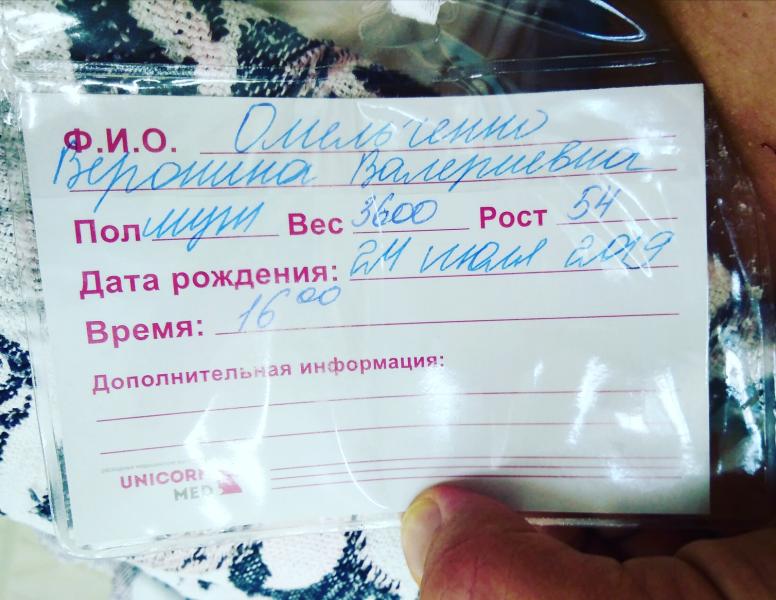 Ф.И.О. Омельченко
Вероника Валериевна
Пол муж Вес 3600 Рост 54
Дата рождения: 24 июля 2019
Время: 16 00
Дополнительная информация:
UNICORN
MED